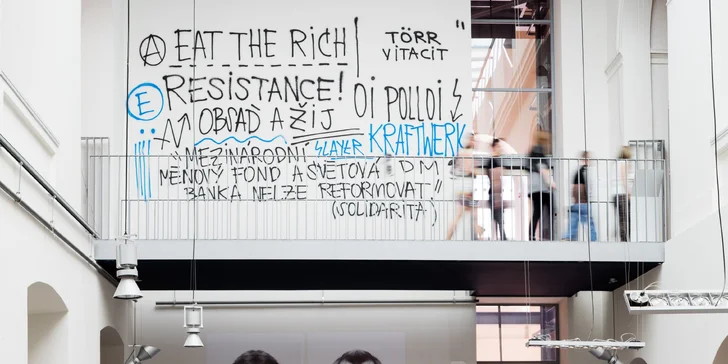 Ⓐ EAT THE RICH
TÖRR
VITACIT
RESISTANCE!
Ⓔ
OBSAĎ A ŽIJ
OI POLLOI
SLAYER KRAFTWERK
"MEZINÁRODNÍ
MĚNOVÝ FOND A SVĚTOVÁ DM
BANKA NELZE REFORMOVAT"
(SOLIDARITA)